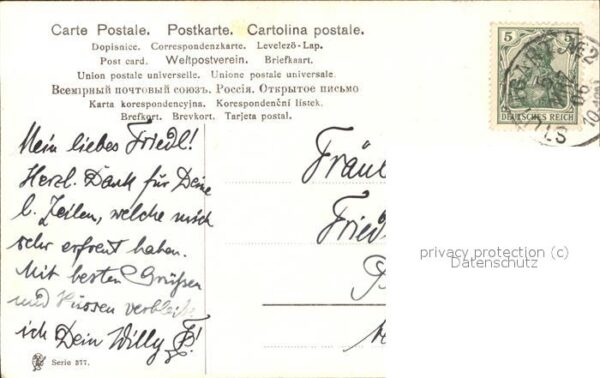 Carte Postale. Postkarte. Cartolina postale.
Dopisnice. Correspondenzkarte. Levelező-Lap.
Post card. Weltpostverein. Briefkaart.
Union postale universelle. Unione postale universale.
Всемірный почтовый союзъ. Россія. Открытое письмо
Karta korespondencyjna. Korespondenční lístek.
Brefkort. Brevkort. Tarjeta postal.
5 5
DEUTSCHES REICH
Mein liebes Friedl!
Herzl. Dank für Deine
l. Zeilen, welche mich
sehr erfreut haben.
Mit besten Grüßen
und Küssen verbleibe
ich Dein Willy
Serie 377.
Fräul
Fried
privacy protection (c)
Datenschutz